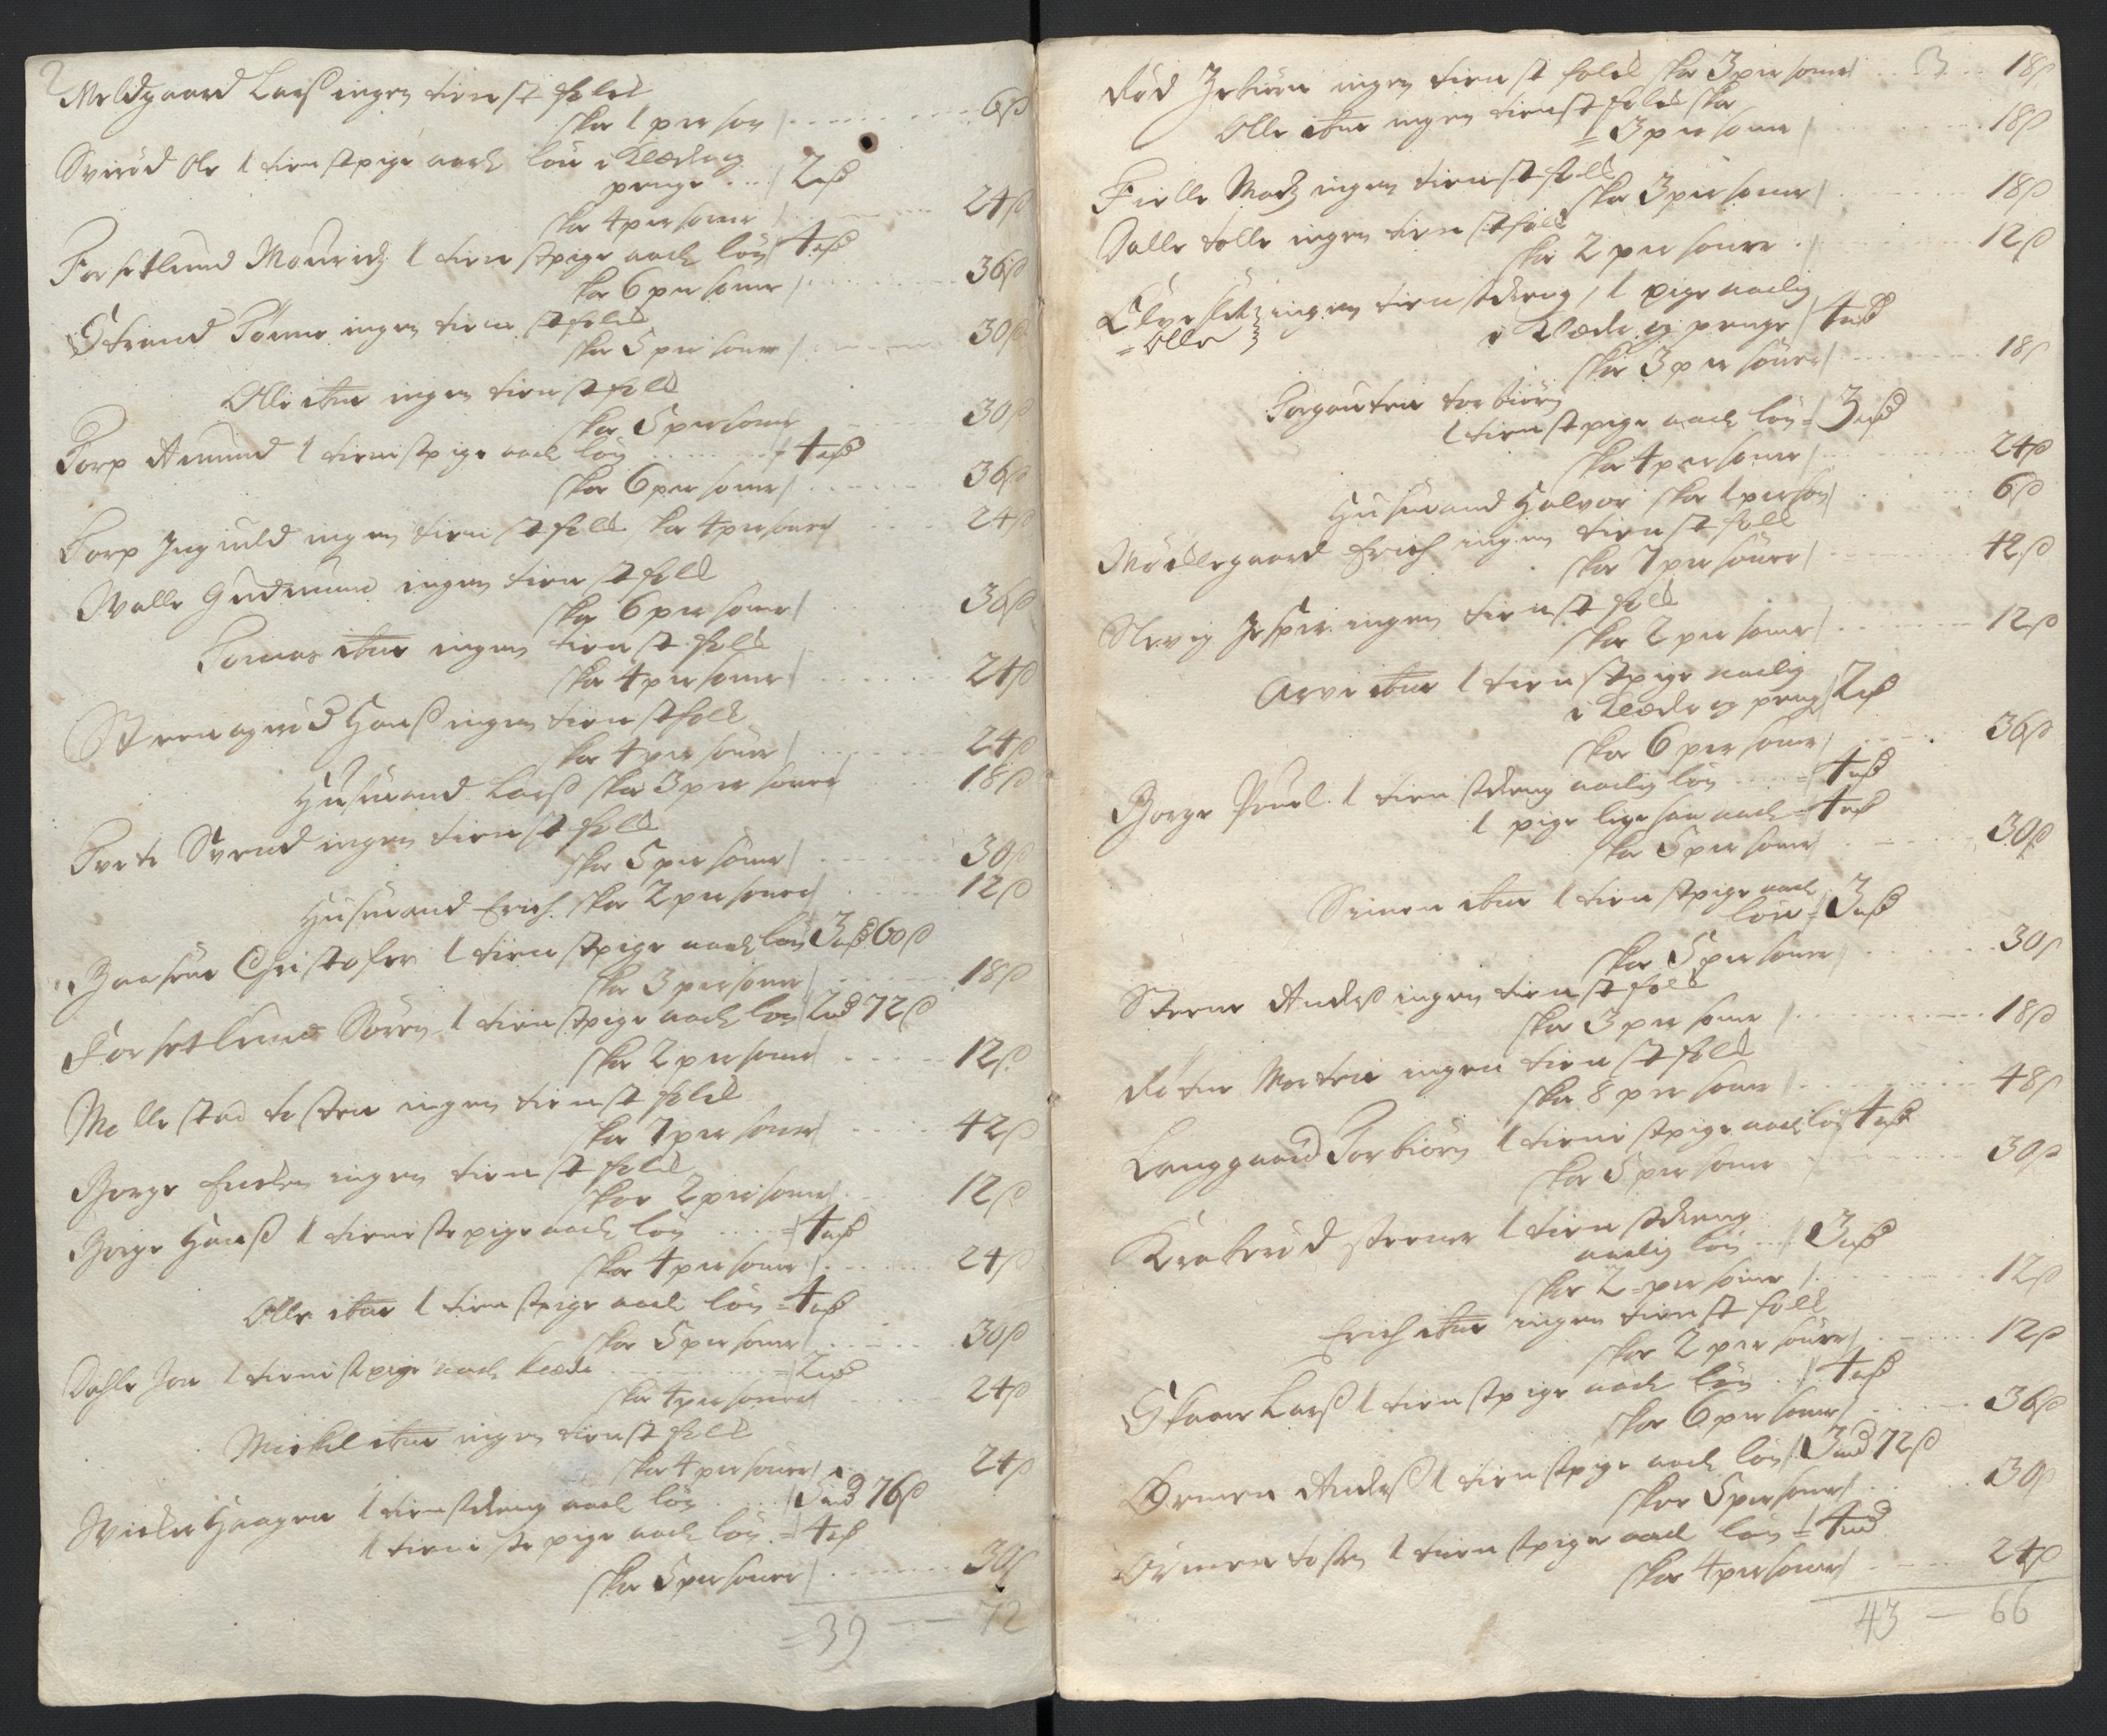 2
Meldgaard Larß ingen tienst folck
skor 1 person 6ß
Sverød Ole 1 tienstpige aarl løn i Klæder og
penge 2 rd
skor 4 persone 24ß
Forsetlund Mouridz 1 tienstpige aarl løn 4 rd
skor 6 persone 36ß
Strand Tønne ingen tienst folck
skor 5 persone 30ß
Olle ibm ingen tienst folck
skor 5 persone 30ß
Torp Amund 1 tienistpige aarl løn 4 rd
skor 6 persone 36ß
Torp Inguld ingen tienist folck skor 4 persone 24ß
Walle Gudmund ingen tienst folck
skor 6 persone 36ß
Tomas ibm ingen tienst folck
skor 4 persone 24ß
Steenagerød Hanß ingen tienst folck
skor 4 persone 24ß
Husmand Larß skor 3 persone 18ß
Tvete Svend ingen tienst folck
skor 5 persone 30ß
Husmand Erich skor 2 persone 12ß
Christofer 1 tienstpige aarl løn 3 rd 60ß
skor 3 persone 18ß
Forsetlund Søren 1 tienstpige aarl løn 2 rd 72ß
skor 2 persone 12ß
Mellestad tosten ingen tienst folck
skor 7 persone 42ß
Borge ingen tienst folck
skor 2 persone 12ß
Borge Hanß 1 tienistepige aarl løn 4 rd
skor 4 persone 24ß
Olle ibm 1 tienstpige aarl løn 4 rd
skor 5 persone 30ß
Dahle Jon 1 tienistpige aarl klæder 2 rd
skor 4 persone 24ß
Mickel ibm ingen tienst folck
skor 4 persone 24ß
Haagen 1 tienstdreng aarl løn 5 rd 76ß
1 tieniste pige aarl løn 4 rd
skor 5 persone 30ß
39 — 72
3
Rød ingen tienst folck skor 3 persone 18ß
Olle ibm ingen tienst folck skor
3 persone 18ß
Fielle Madz ingen tienst folck
skor 3 persone 18ß
Dalle tolle ingen tienst folck
skor 2 persone 12ß
ingen tienstdreng, 1 pige aarlig
Olle
i Klæder og penge 4 rd
skor 3 persone 18ß
torbiørn
1 tienstpige aarl løn 3 rd
skor 4 persone 24ß
Husmand Halvor skor 1 person 6ß
Møllegaard Erich ingen tienst folck
skor 7 persone 42ß
Slevig Jesper ingen tienst folck
skor 2 persone 12ß
Arve ibm 1 tienstpige aarlig
i Klæder og penge 2 rd
skor 6 persone 36ß
Borge Poul 1 tienstdreng aarlig løn 4 rd
1 pige lige saa aarl 4 rd
skor 5 persone 30ß
Simen ibm 1 tienstpige aarl
løn 3 rd
skor 5 persone 30ß
Steene Anderß ingen tienst folck
skor 3 persone 18ß
Morten ingen tienst folck
skor 8 persone 48ß
Langgaard Torbiørn 1 tienistpige aarl løn 4 rd
skor 5 persone 30ß
Kraberød steener 1 tienstdreng
aarlig løn 3 rd
skor 2 persone 12ß
Erich ibm ingen tienst folck
skor 2 persone 12ß
Skaar Larß 1 tienstpige aarl løn 4 rd
skor 6 persone 36ß
Ørmen Anderß 1 tienstpige aarl løn 3 rd 72ß
skor 5 persone 30ß
Ørmen tosten 1 tienstpige aarl løn 4 rd
skor 4 persone 24ß
43 — 66